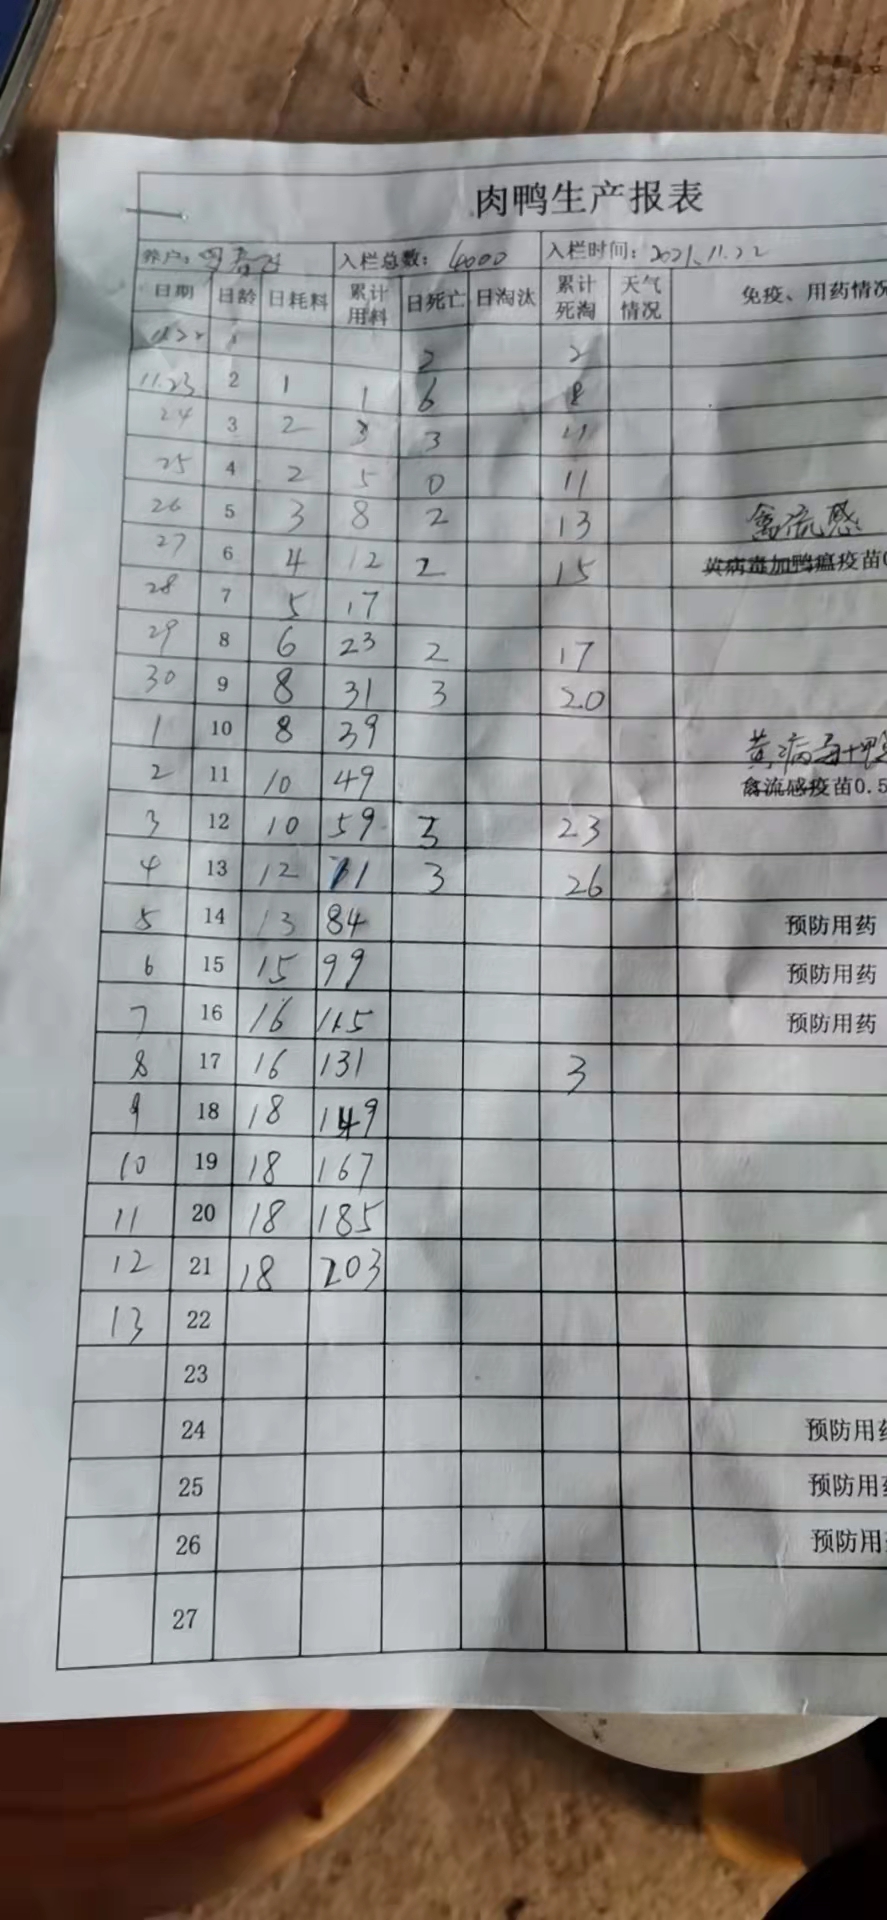 肉鸭生产报表
养户: 入栏总数: 4000 入栏时间: 2021.11.22
日期 日龄 日耗料 累计用料 日死亡 日淘汰 累计死淘 天气情况 免疫、用药情况
11.22 1 2 2
11.23 2 1 1 6 8
24 3 2 3 3 11
25 4 2 5 0 11
26 5 3 8 2 13 禽流感
27 6 4 12 2 15 黄病毒加鸭瘟疫苗
28 7 5 17
29 8 6 23 2 17
30 9 8 31 3 20
1 10 8 39 黄病毒+鸭
2 11 10 49 禽流感疫苗0.5
3 12 10 59 3 23
4 13 12 71 3 26
5 14 13 84 预防用药
6 15 15 99 预防用药
7 16 16 115 预防用药
8 17 16 131 3
9 18 18 149
10 19 18 167
11 20 18 185
12 21 18 203
13 22
23
24 预防用药
25 预防用药
26 预防用
27